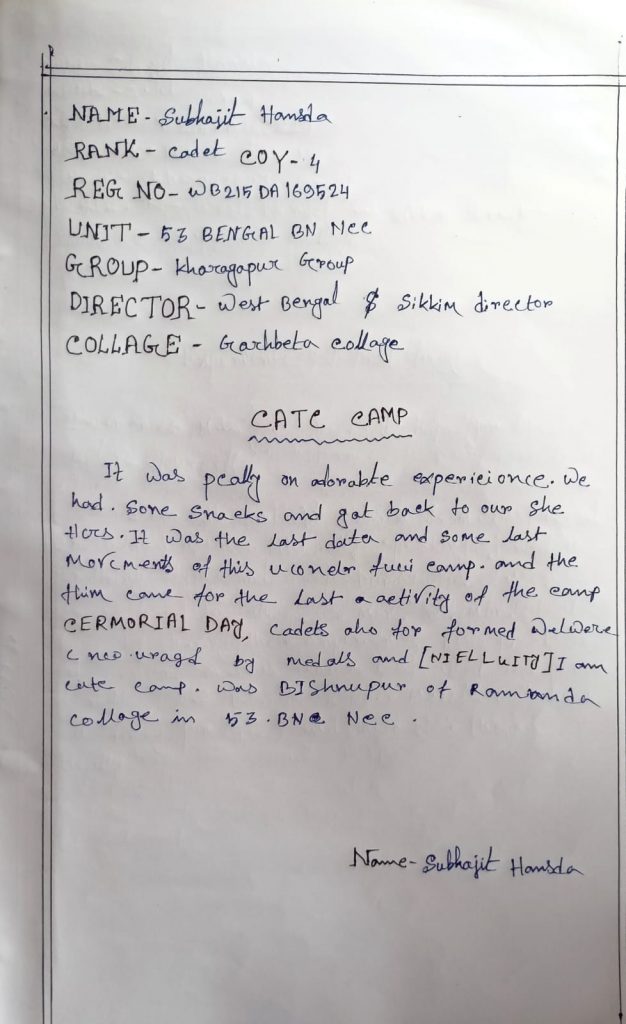 NAME - Subhajit Hansda
RANK - cadet COY- 4
REG NO - WB215DA169524
UNIT - 53 BENGAL BN Ncc
GROUP - Kharagapur Group
DIRECTOR - West Bengal & Sikkim director
COLLAGE - Garhbeta collage
CATC CAMP
It was peally on adorable experieionce. We
had. Some snacks and gat back to our She
lters. It was the last dater and some last
Movcments of this uconder fuii camp. and the
thim came for the Last a activity of the camp
CERMORIAL DAY, cadets aho for formed
c nco uragd by medals and [NIELLUITY] I am
catc camp. was BIShnupur of Ramanda
collage in 53. BN Ncc.
Name- Subhajit Hansda